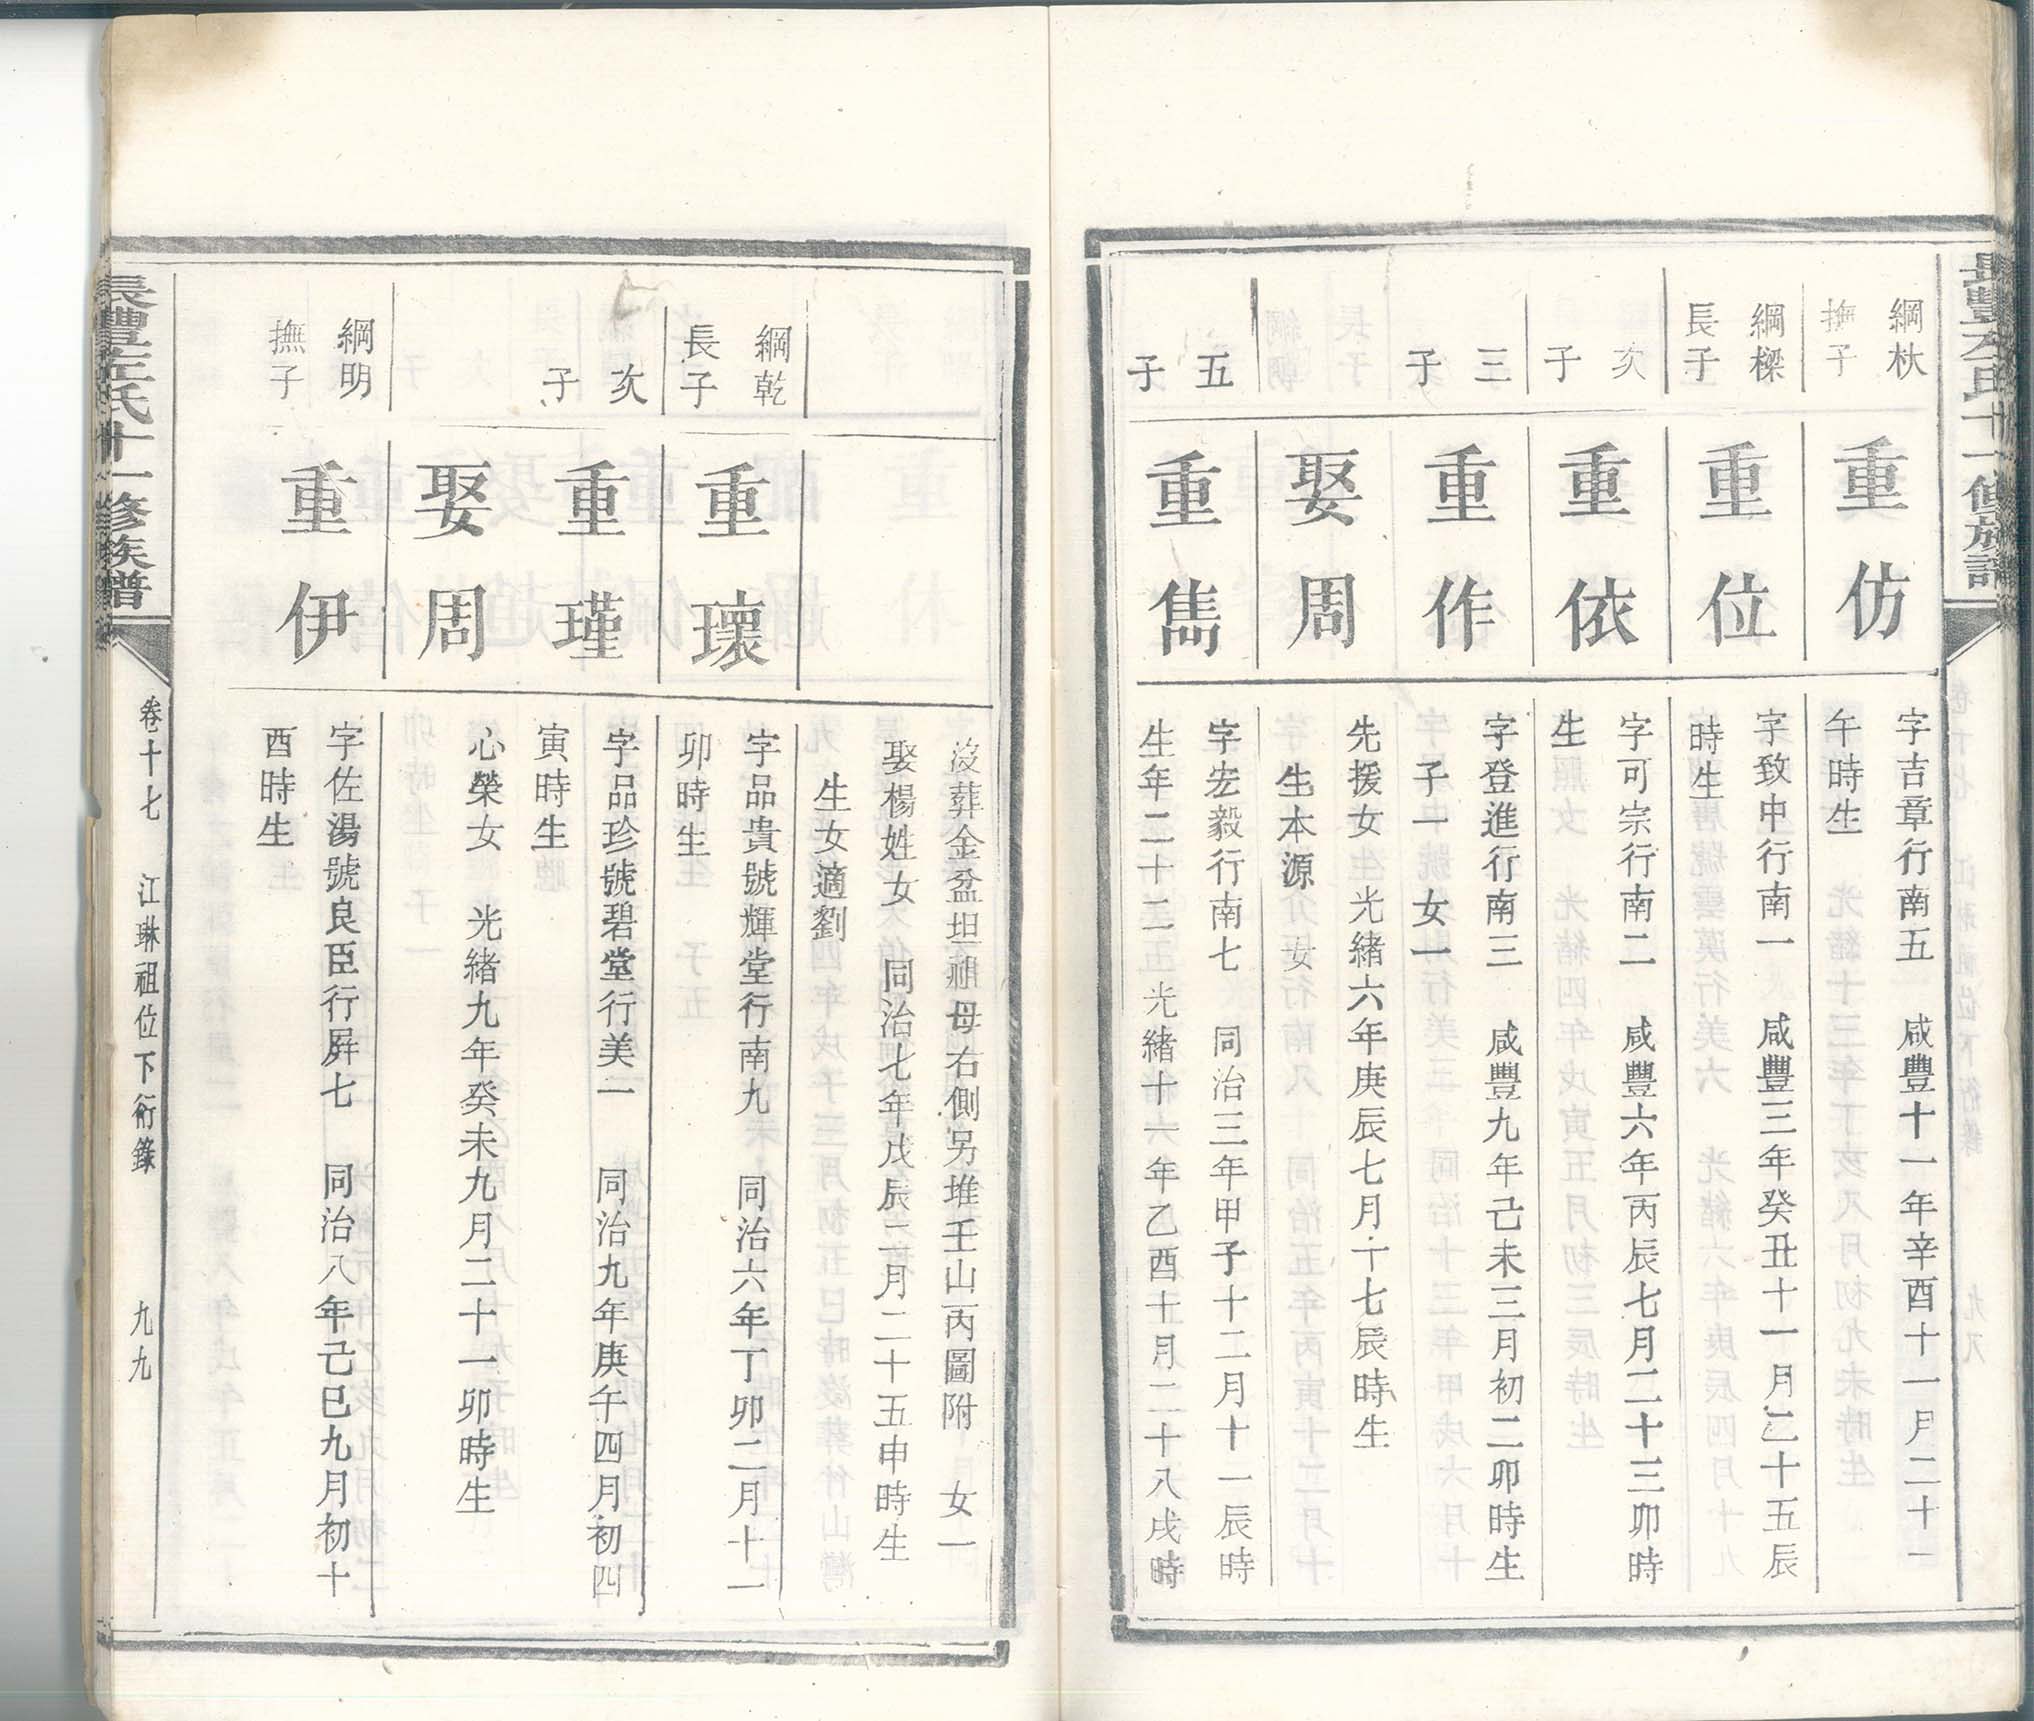 長豐左氏十一修族譜
綱杕
撫子
重仿
字吉章行南五 咸豐十一年辛酉十一月二十一
午時生
綱樑
長子
重位
字致中行南一 咸豐三年癸丑十一月乙十五辰
時生
次
子
重依
字可宗行南二 咸豐六年丙辰七月二十三卯時
生
三
子
重作
字登進行南三 咸豐九年己未三月初二卯時生
子一 女一
娶周
先援女 光緒六年庚辰七月十七辰時生
生本源 女
五
子
重雋
字宏毅行南七 同治三年甲子十二月十一辰時
生年二十二 光緒十一年乙酉十月二十八戌時
沒葬金盆坦祖母右側另堆壬山丙圖附 女一
娶楊姓女 同治七年戊辰二月二十五申時生
生女適劉
綱乾
長子
重瓌
字品貴號輝堂行南九 同治六年丁卯二月十一
卯時生
次
子
重瑾
字品珍號碧堂行美一 同治九年庚午四月初四
寅時生
娶周
心榮女 光緒九年癸未九月二十一卯時生
綱明
撫子
重伊
字佐湯號良臣行屏七 同治八年己巳九月初十
酉時生
長豐左氏十一修族譜
卷十七 江琳祖位下衍錄 九九